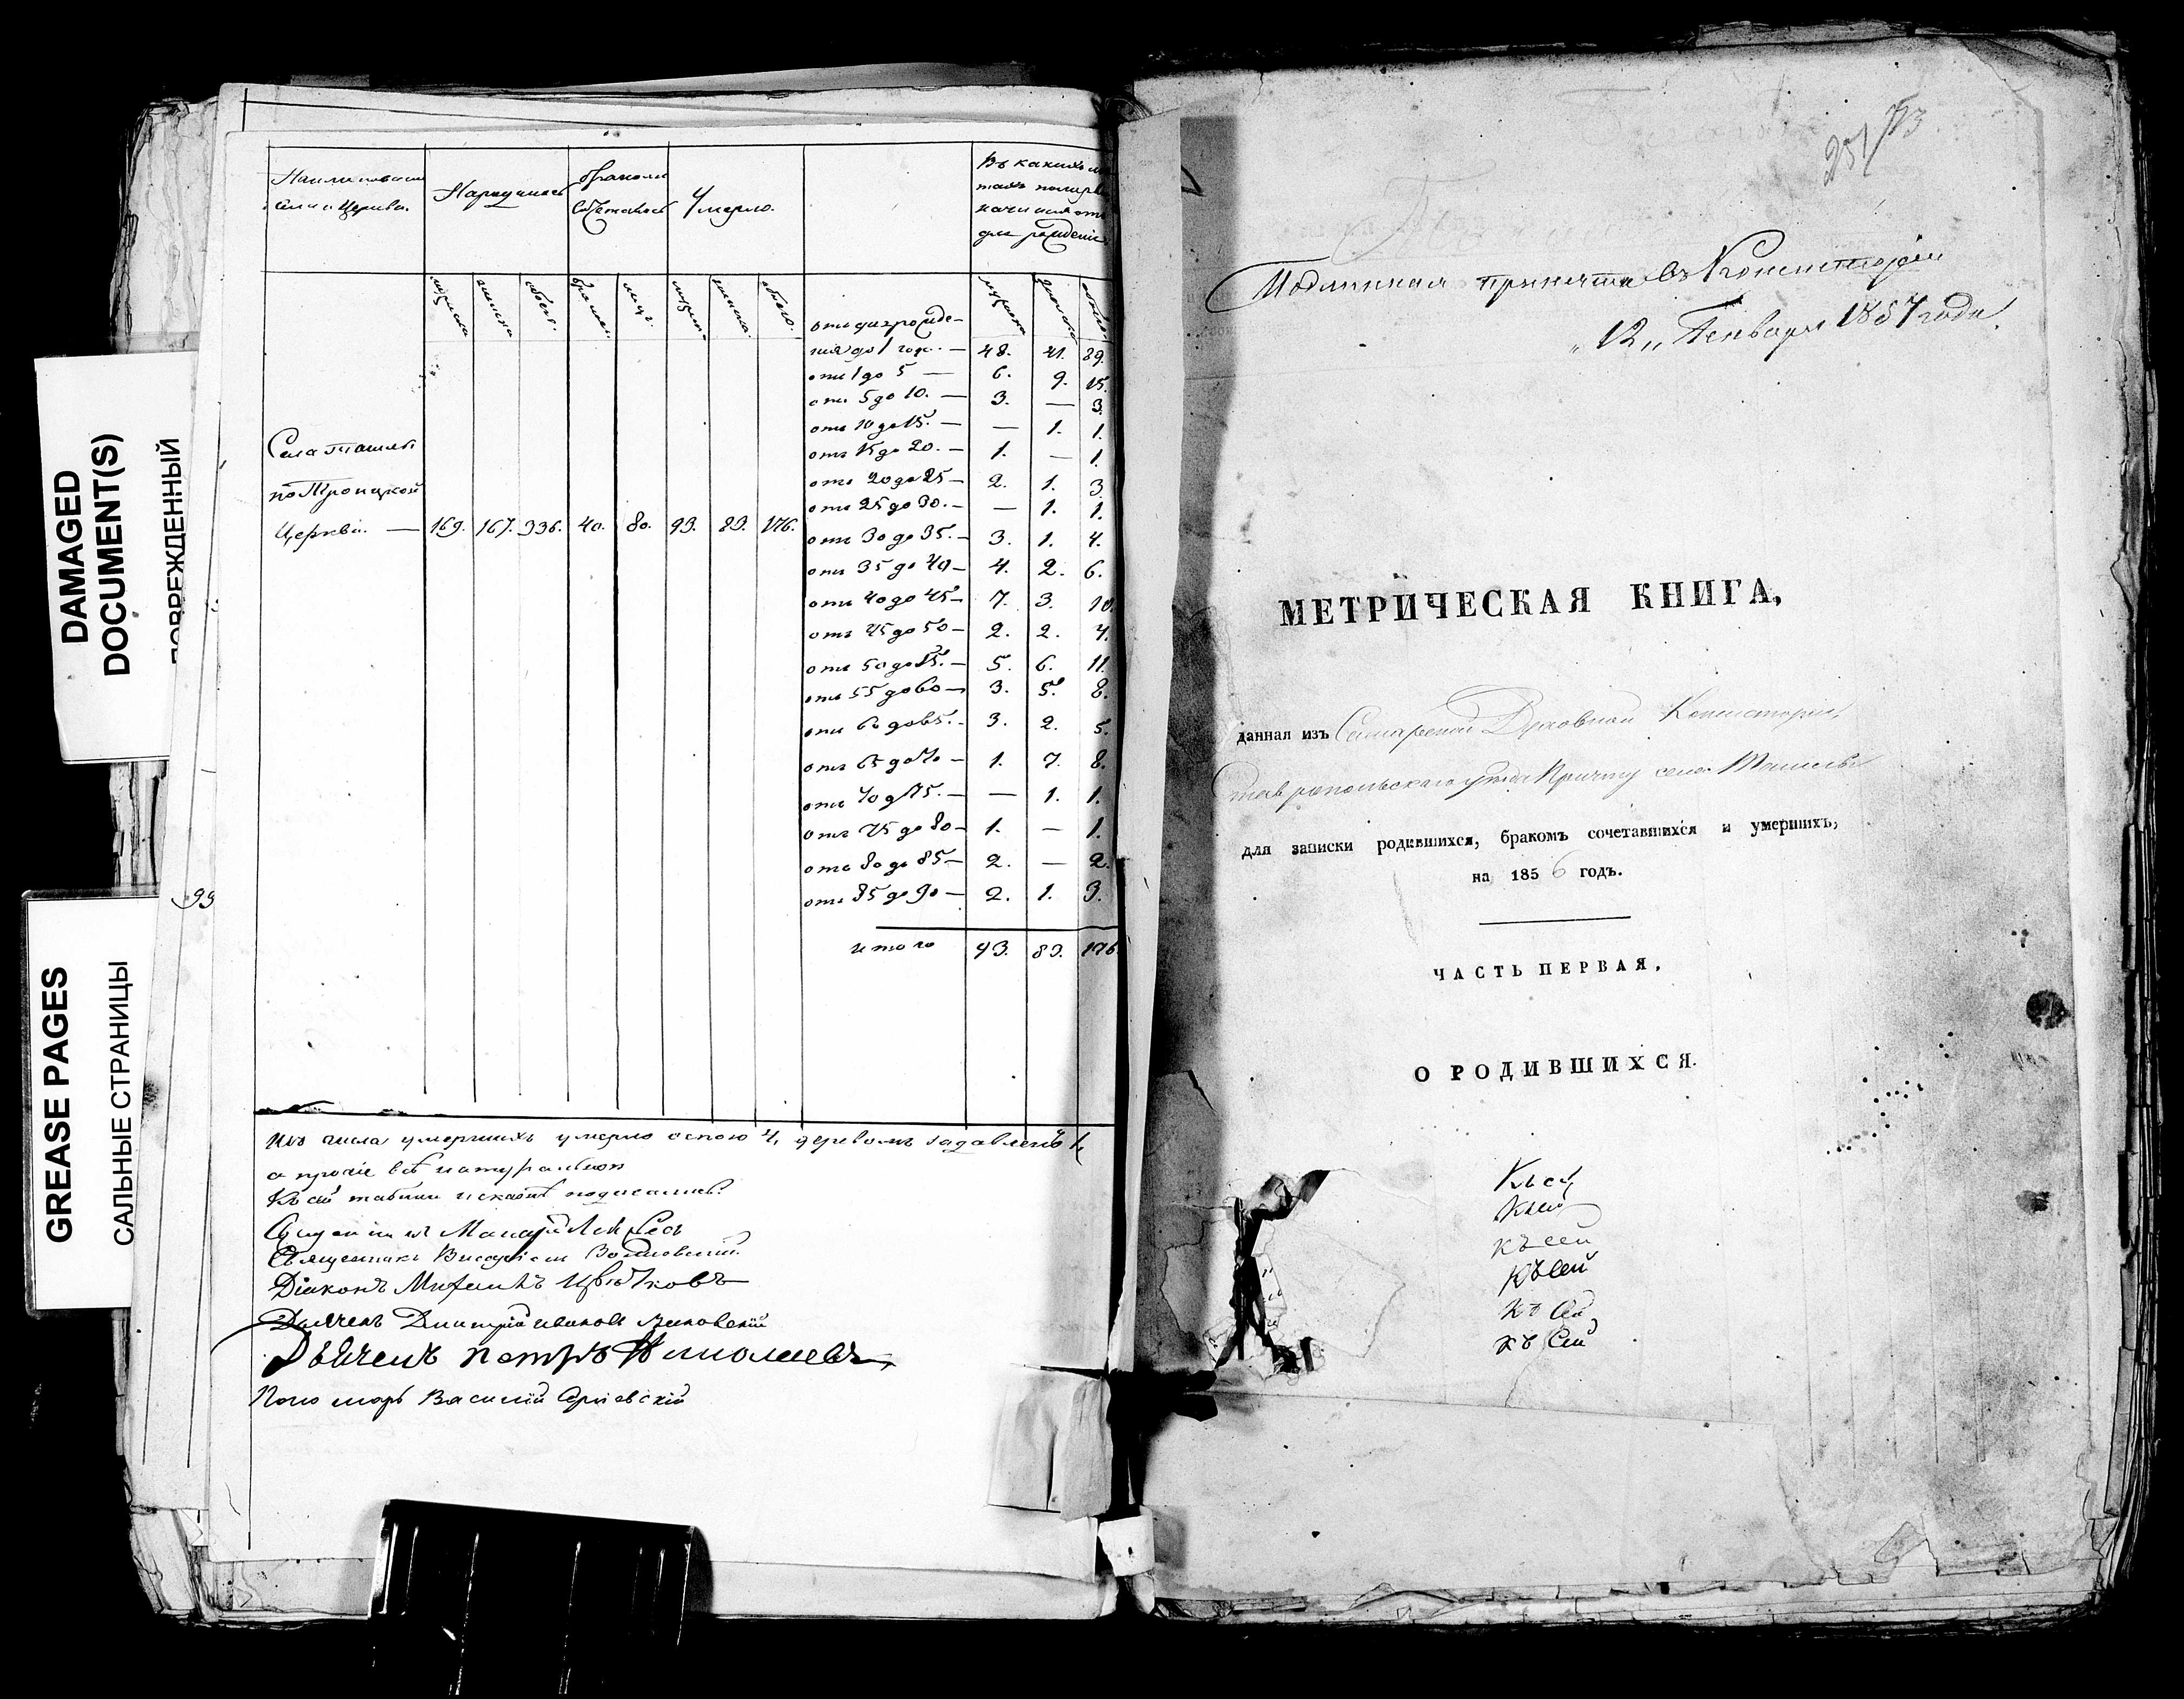 DAMAGED
DOCUMENT(S)
GREASE PAGES
САЛЬНЫЕ СТРАНИЦЫ
99
села и Церкви. Народилось браком Умерло. Въ какихъ
начиная отъ
дня рожденія
отъ дня рожде-
нія до 1 года. — 48. 41. 89.
отъ 1 до 5 — 6. 9. 15.
отъ 5 до 10. — 3. — 3.
отъ 10 до 15. — — 1. 1.
Села Ташлы отъ 15 до 20. — 1. — 1.
по Троицкой отъ 20 до 25 — 2. 1. 3
отъ 25 до 30. — — 1. 1.
Церкви. — 169. 167. 336. 40. 80. 93. 83. 176.
отъ 30 до 35. — 3. 1. 4.
отъ 35 до 40 — 4. 2. 6.
отъ 40 до 45 — 7. 3. 10.
отъ 45 до 50 — 2. 2. 4.
отъ 50 до 55. — 5. 6. 11.
отъ 55 до 60 — 3. 5. 8.
отъ 60 до 65. — 3. 2. 5.
отъ 65 до 70 — 1. 7. 8.
отъ 70 д 75. — — 1. 1.
отъ 75 до 80 — 1. — 1.
отъ 80 до 85 — 2. — 2.
отъ 85 до 90 — 2. 1. 3.
итого 93. 83. 176
Изъ числа умершихъ умерло оспою 4, деревомъ задавленъ 1,
а прочіе всѣ натурально
Къ сей
Священникъ
Священникъ
Діаконъ Михаилъ Цвѣтковъ
Дьячекъ Дмитрій
Дьячекъ Петръ Николаевъ
Пономарь Василій
251/73
Подлинная принята въ Консисторіи
„12„ Генваря 1857 года.
МЕТРИЧЕСКАЯ КНИГА,
данная изъ Самарской Духовной Консисторіи,
Ставропольскаго уѣзда Причту села Ташлы
для записки родившихся, бракомъ сочетавшихся и умершихъ,
на 1856 годъ.
ЧАСТЬ ПЕРВАЯ.
О РОДИВШИХСЯ.
Къ сей
Къ сей
къ сей
Къ сей
Къ Сей
къ Сей